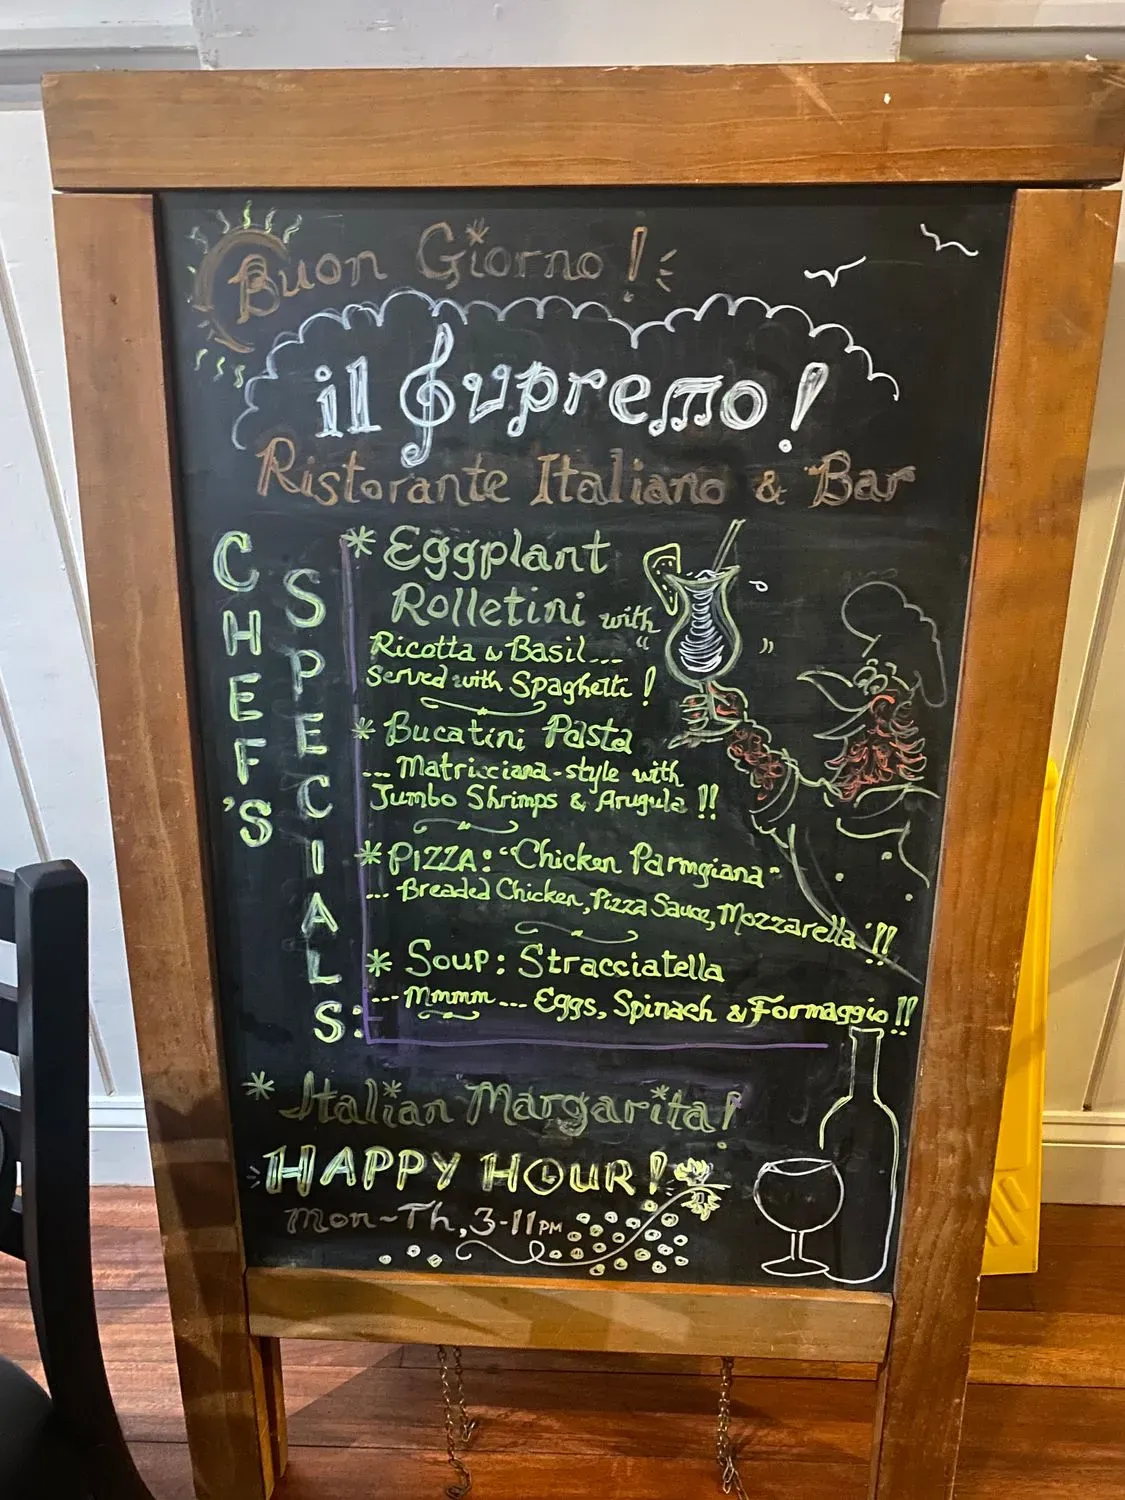 Buon Giorno!
il Supremo!
Ristorante Italiano & Bar
CHEF'S
SPECIALS:
* Eggplant
Rolletini with
Ricotta & Basil...
Served with Spaghetti!
* Bucatini Pasta
... Matricciana-style with
Jumbo Shrimps & Arugula!!
* PIZZA: "Chicken Parmgiana"
... Breaded Chicken, Pizza Sauce, Mozzarella!!
* Soup: Stracciatella
... Mmmm... Eggs, Spinach & Formaggio!!
* Italian Margarita!
HAPPY HOUR!
Mon-Th, 3-11PM